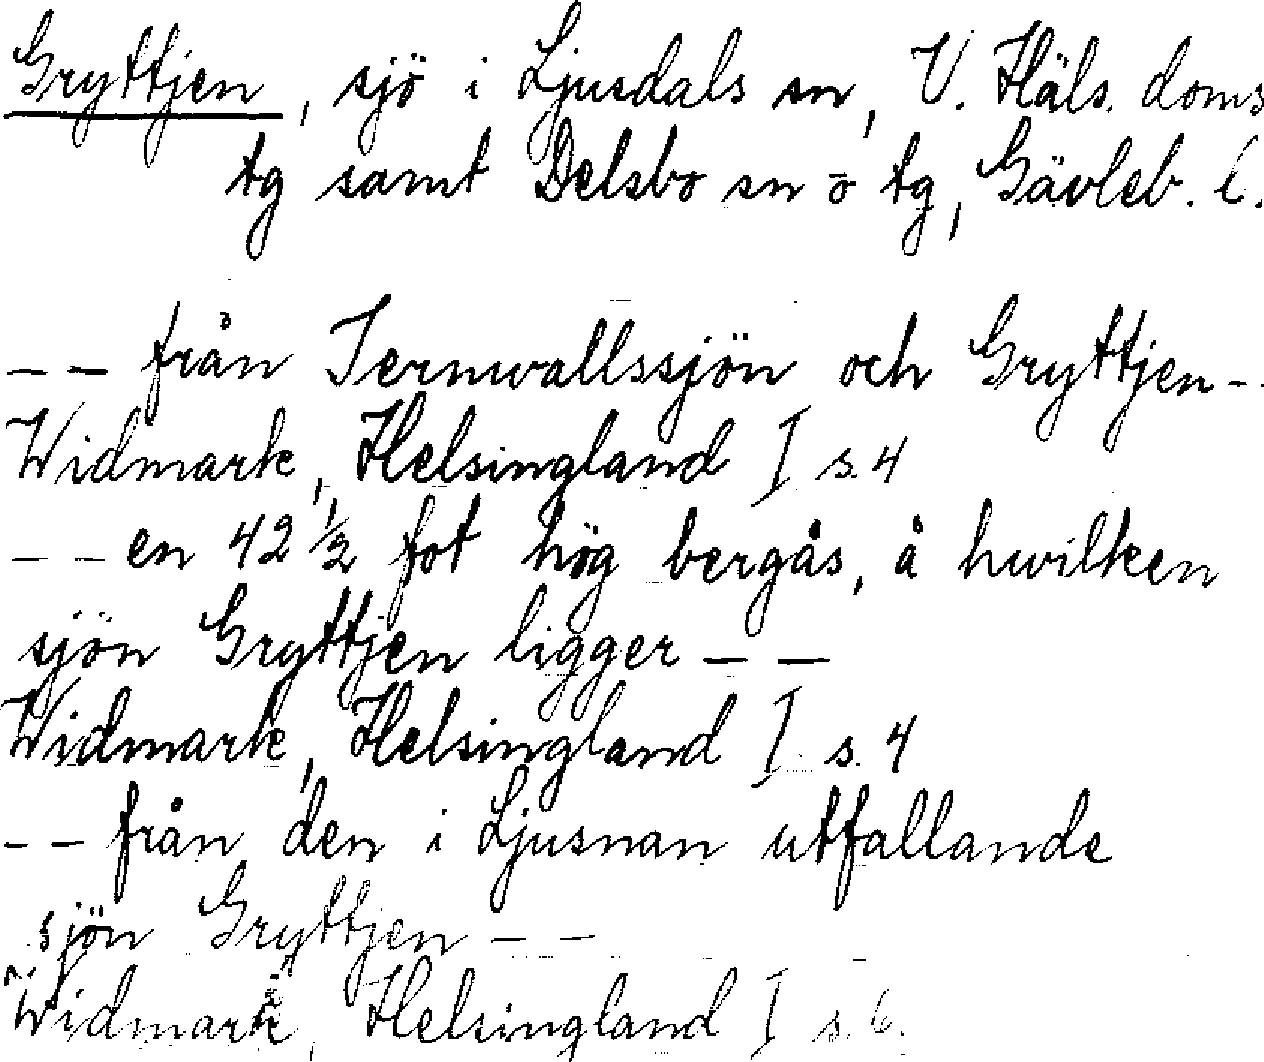 Gryttjen, sjö i Ljusdals sn, V. Häls. doms
tg samt Delsbo sn o tg, Gävleb. l.
-- från Ternwallssjön och Gryttjen --
Widmark, Helsingland I s. 4
-- en 42 1/2 fot hög bergås, å hwilken
sjön Gryttjen ligger --
Widmark, Helsingland I s. 4
-- från den i Ljusnan utfallande
sjön Gryttjen --
Widmark, Helsingland I s. 6.